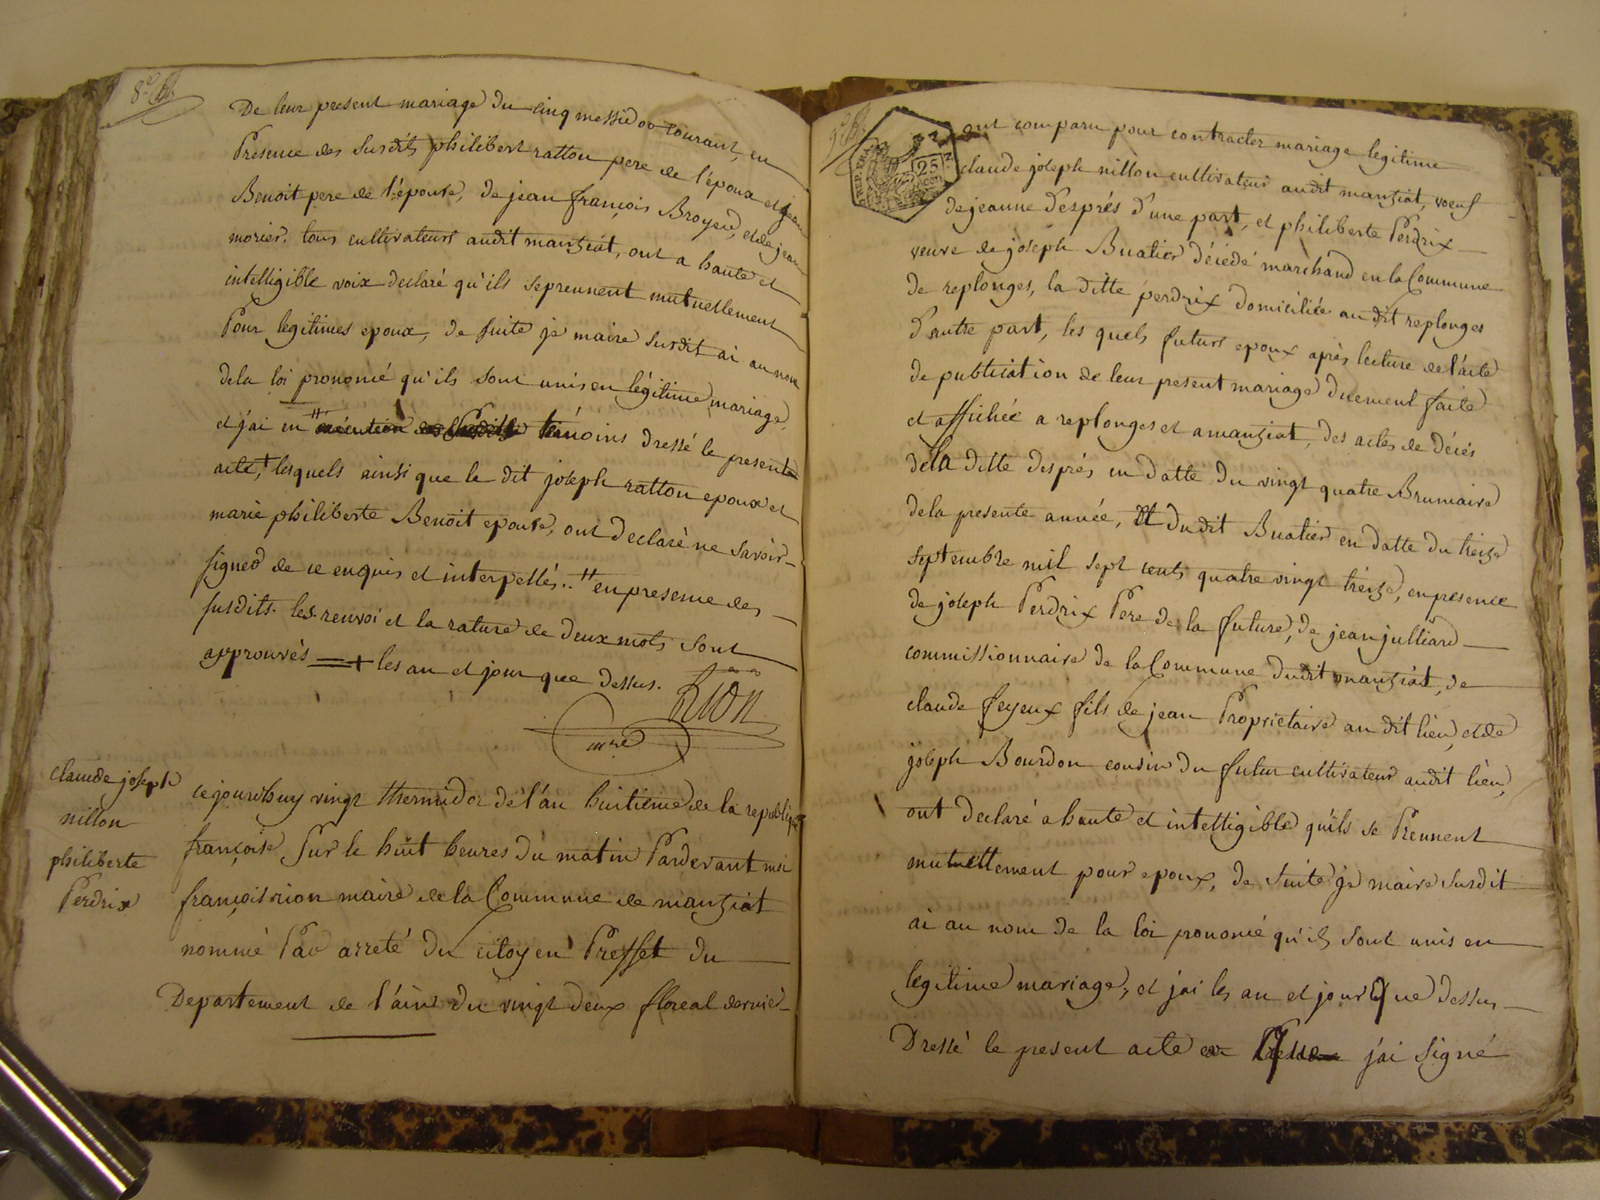 8.e
De leur present mariage du cinq messidor courant, en
Presence des susdits philibert ratton pere de l'époux et jean
Benoit pere de l'épouse, de jean françois Broyer, et de jean
morier. tous cultivateurs audit manziat, ont a haute et
intelligible voix declaré qu'ils se prennent mutuellement
Pour legitimes epoux, de suite je maire susdit ai au nom
de la loi prononcé qu'ils sont unis en légitime mariage,
et j'ai en témoins dressé le present
acte, lesquels ainsi que le dit joseph ratton epoux et
marie philiberte Benoit epouse, ont declaré ne savoir
signer de ce enquis et interpellés .. # en presence des
susdits. les renvoi et la rature de deux mots sont
approuvés les an et jour que dessus.
rion
mre
claude joseph
nillon
philiberte
Perdrix
cejourdhuy vingt thermidor de l'an huitieme de la republique
françoise sur le huit heures du matin Pardevant moi
françois rion maire de la Commune de manziat
nommé Par arreté du citoyen Preffet du
Departement de l'ain du vingt deux floreal dernier
9.e
25
ont comparu pour contracter mariage legitime
claude joseph nillon cultivateur audit manziat, voeuf
de jeanne després d'une part, et philiberte Perdrix
veuve de joseph Buatier décédé marchand en la Commune
de replonges, la ditte perdrix domiciliée au dit replonges
d'autre part, les quels futurs epoux après lecture de l'acte
de publication de leur present mariage duement faite
et affichée a replonges et a manziat, des actes de décés
de la ditte després en datte du vingt quatre Brumaire
de la presente année, et dudit Buatier en datte du treize
septembre mil sept cents quatre vingt treize, en presence
de joseph Perdrix Pere de la future, de jean julliard
commissionnaire de la Commune dudit manziat, de
claude feyeux fils de jean Proprietaire au dit lieu, et de
joseph Bourdon cousin du futur cultivateur audit lieu,
ont declaré a haute et intelligible qu'ils se Prennent
mutuellement pour epoux, de suite je maire susdit
ai au nom de la loi prononcé qu'ils sont unis en
legitime mariage, et j'ai les an et jour que dessus
Dressé le present acte j'ai signé